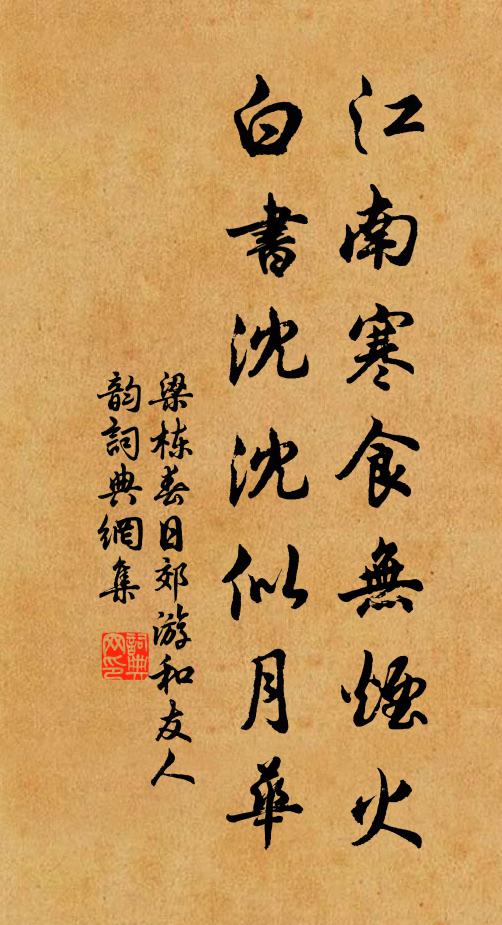 江南寒食無煙火
白書沈沈似月華
梁栋春日郊游和友人
韵詞典網集
詞典网印